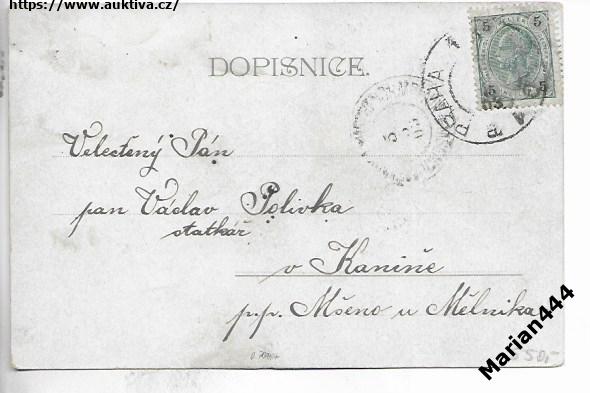 https://www.auktiva.cz/
DOPISNICE.
5 5
5 5
PRAHA
Velectěný Pán
pan Václav Polivka
statkář
v Kanině
p.p. Mšeno u Mělnika
Marian444
50,-